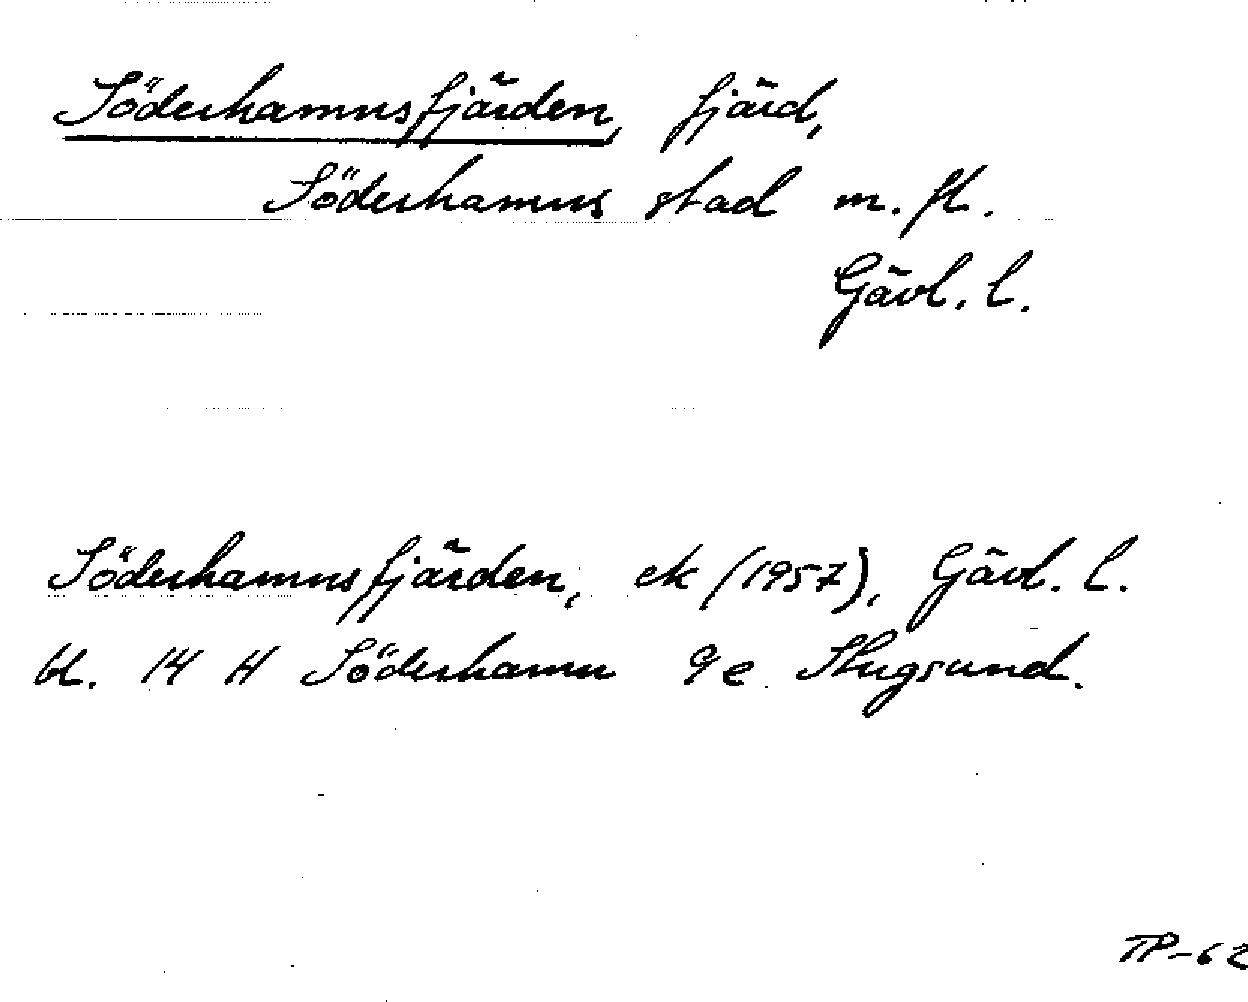 Söderhamnsfjärden, fjärd,
Söderhamns stad m. fl.
Gävl. l.
Söderhamnsfjärden, ek (1957), Gävl. l.
bl. 14 H Söderhamn 9e Stugsund.
TP-62